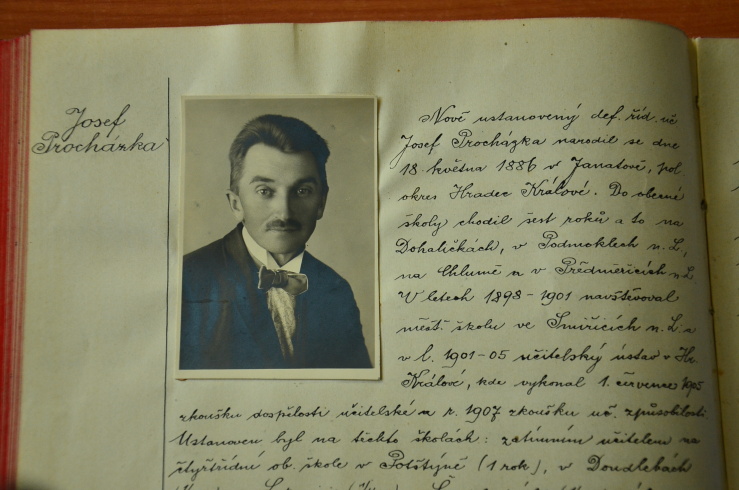 Josef
Procházka
Nově ustanovený def. říd. uč
Josef Procházka narodil se dne
18. května 1886 v Janatově, pol.
okres Hradec Králové. Do obecné
školy chodil šest roků a to na
Dohaličkách, v Podmoklech n. L.,
na Chlumě a v Předměřicích n. L.
V letech 1898 - 1901 navštěvoval
měšť. školu ve Smiřicích n. L. a
v l. 1901-05 učitelský ústav v Hr.
Králové, kde vykonal 1. července 1905
zkoušku dospělosti učitelské a r. 1907 zkoušku uč. způsobilosti
Ustanoven byl na těchto školách: zatímním učitelem na
čtyřtřídní ob. škole v Potštýně (1 rok), v Doudlebách